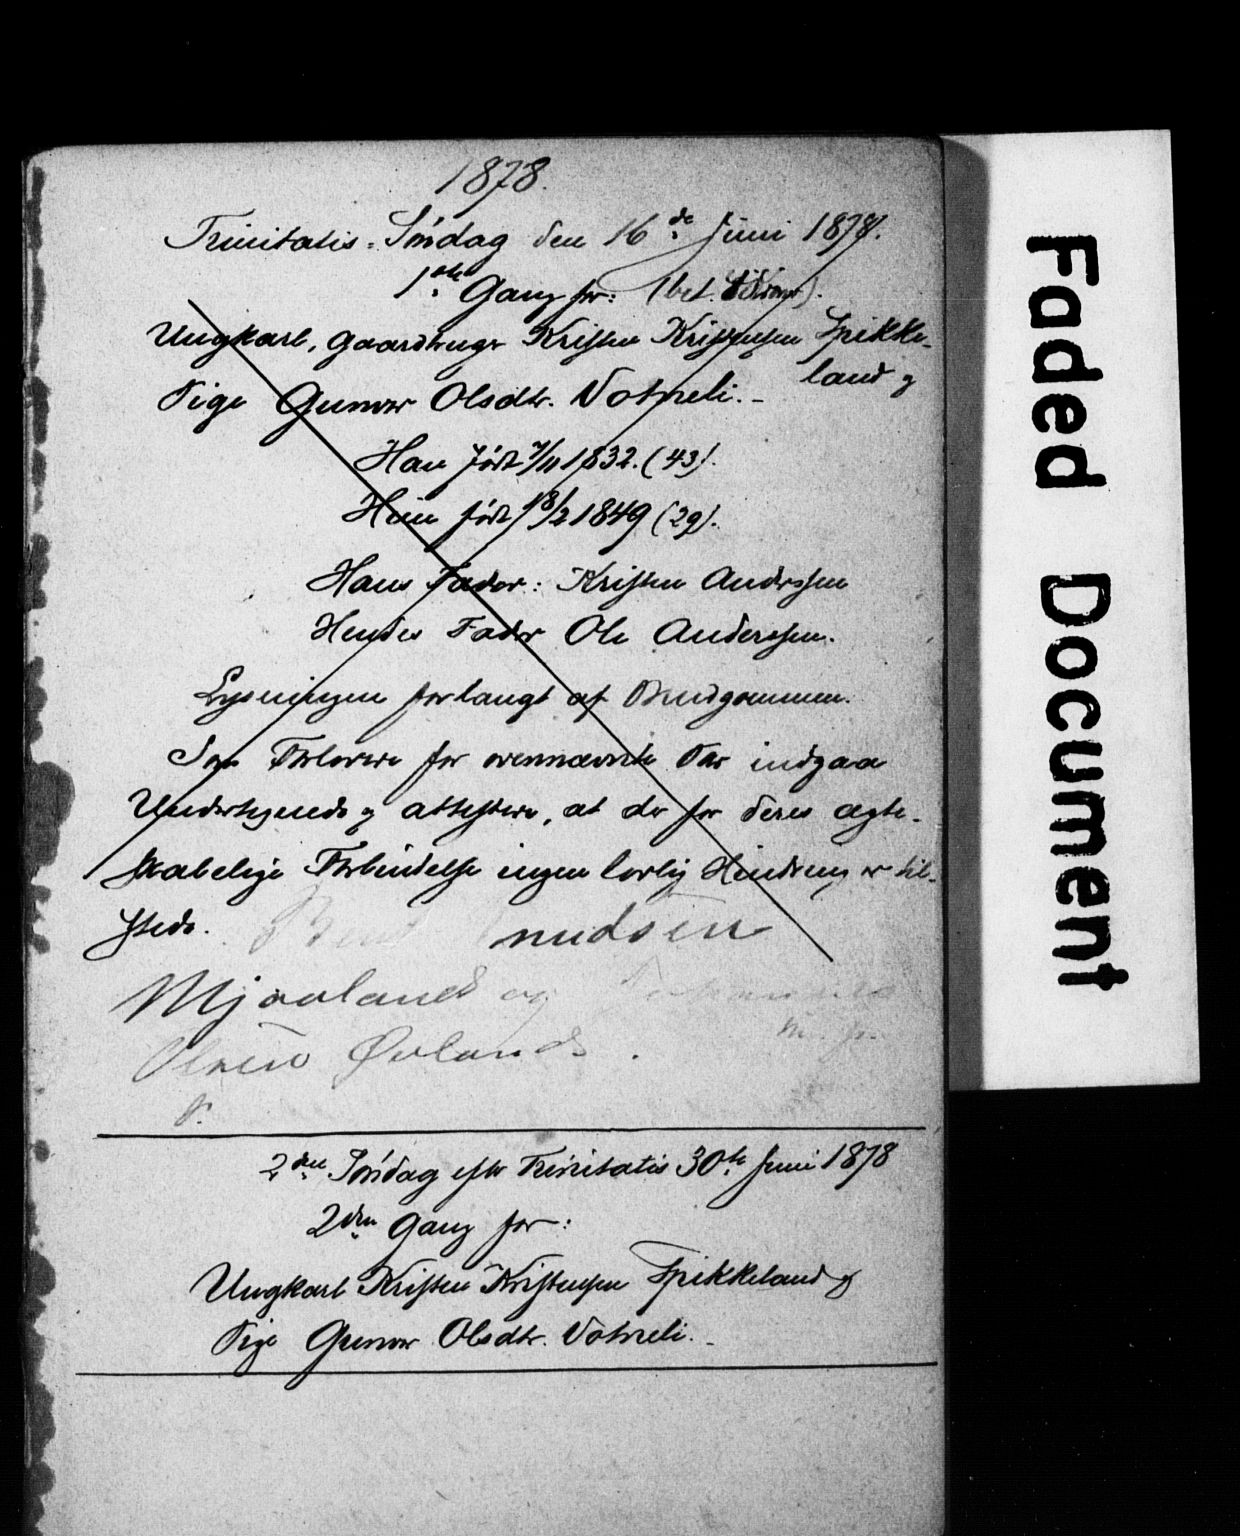 1878.
Trinitatis-Søndag den 16de Juni 1878.
1ste Gang for: (bet.
Ungkarl, Gaardbruger Kristen Kristensen Spikke-
land og
Pige Gunvor Olsdtr. Votneli.-
Han født 7/11 1832. (43).
Hun født 18/2 1849 (29).
Hans Fader: Kristen Anderssen
Hendes Fader Ole Anderssen.
Lysningen forlangt af Brudgommen.
Som Forlovere for ovennævnte Par indgaa
Undertegnede og attestere, at der for deres ægte-
skabelige Forbindelse ingen lovlig Hindring er til-
stede. Bent Knudsen
Mjaaland og
Olsen Øvland.
m. p.
2den Søndag efter Trinitatis 30te Juni 1878
2den Gang for:
Ungkarl Kristen Kristensen Spikkeland og
Pige Gunvor Olsdtr. Votneli.-
Faded Document